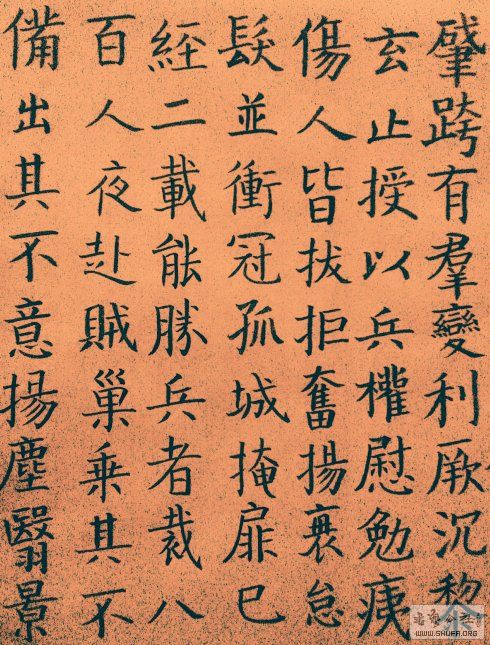 肈跨有羣變利厥沉
玄止授以兵權慰勉痍
傷人皆拔拒奮揚衰怠
髮並衝冠孤城掩扉已
經二載能勝兵者裁八
百人夜赴賊巢乘其不
備出其不意揚塵翳景
WWW.SHUFA.ORG